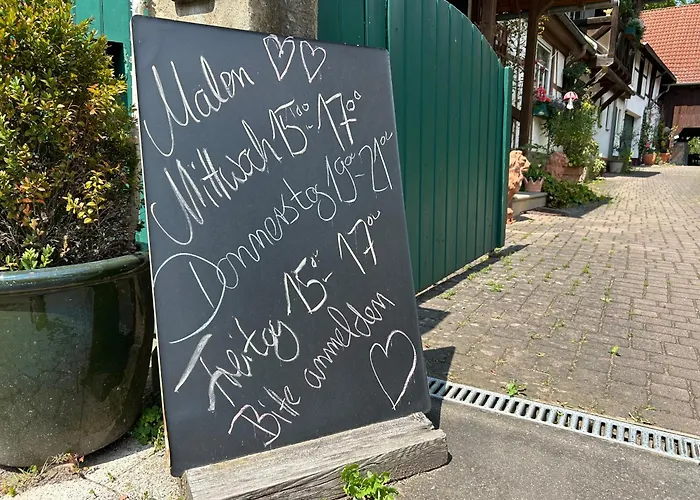 Malen
Mittwoch 15⁰⁰- 17⁰⁰
Donnerstag 19⁰⁰- 21⁰⁰
Freitag 15⁰⁰- 17⁰⁰
Bitte anmelden